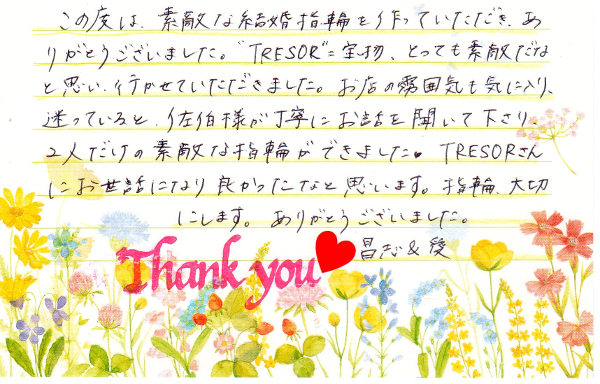 この度は、素敵な結婚指輪を作っていただき、あ
りがとうございました。"TRESOR"=宝物、とっても素敵だな
と思い、行かせていただきました。お店の雰囲気も気に入り、
迷っていると、佐伯様が丁寧にお話を聞いて下さり、
2人だけの素敵な指輪ができました♥ TRESORさん
にお世話になり良かったなと思います。指輪、大切
にします。ありがとうございました。
Thank you
昌志&